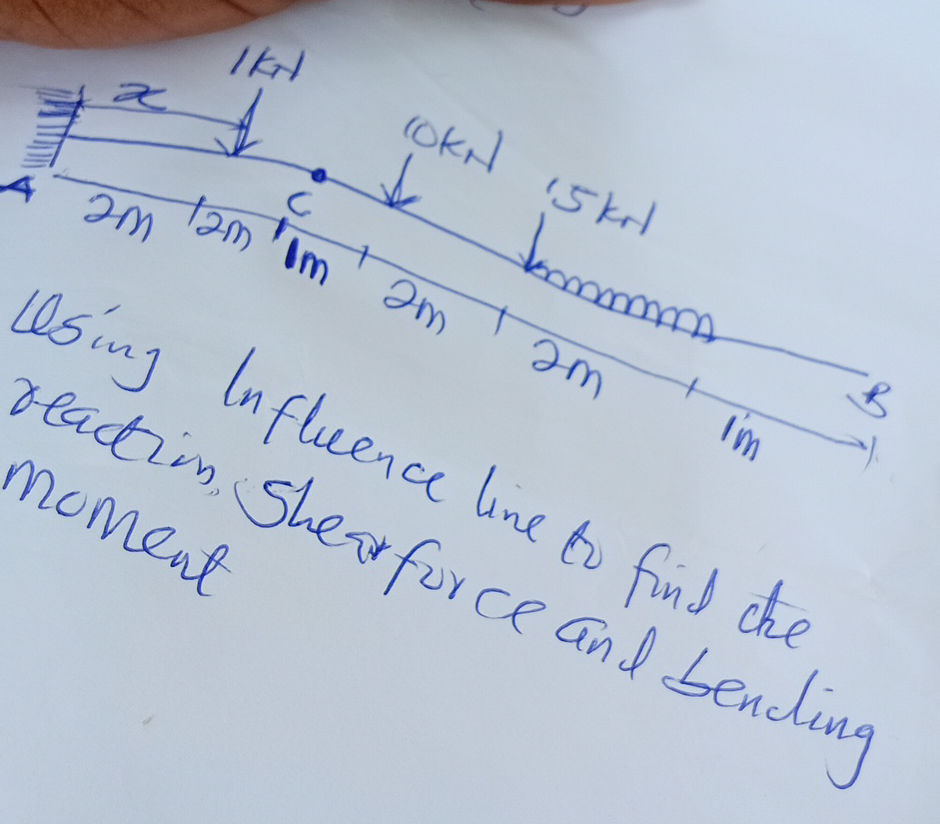 1kN
x
10kN
15kN
A
C
B
2m
2m
1m
2m
2m
1m
Using Influence line to find the
reaction, Shear force and bending
moment